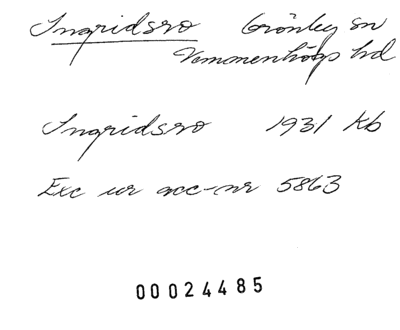 Ingridsro Grönby sn
Vemmenhögs hd
Ingridsro 1931 Kb
Exc ur acc-nr 5863
00024485